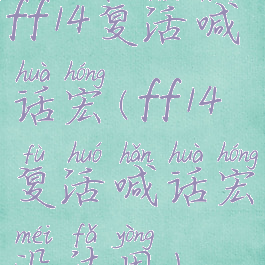 ff14复活喊
huà hóng
话宏(ff14
fù huó hǎn huà hóng
复活喊话宏
méi fǎ yòng
没法用)